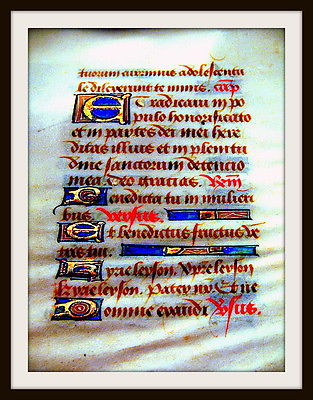 tuorum currimus adolescentu
le dilexerunt te nimis. Cap
Et radicaui in po
pulo honorificato
et in partes dei mei here
ditas illius et in plenitu
dine sanctorum detencio
mea. Deo gracias.
Benedicta tu in mulieri
bus. Versus.
Et benedictus fructus ve
tris tui.
Kyrieleyson. Xpeleyson
Kyrieleyson. Pater nr. Et ne
Domine exaudi Vsus.